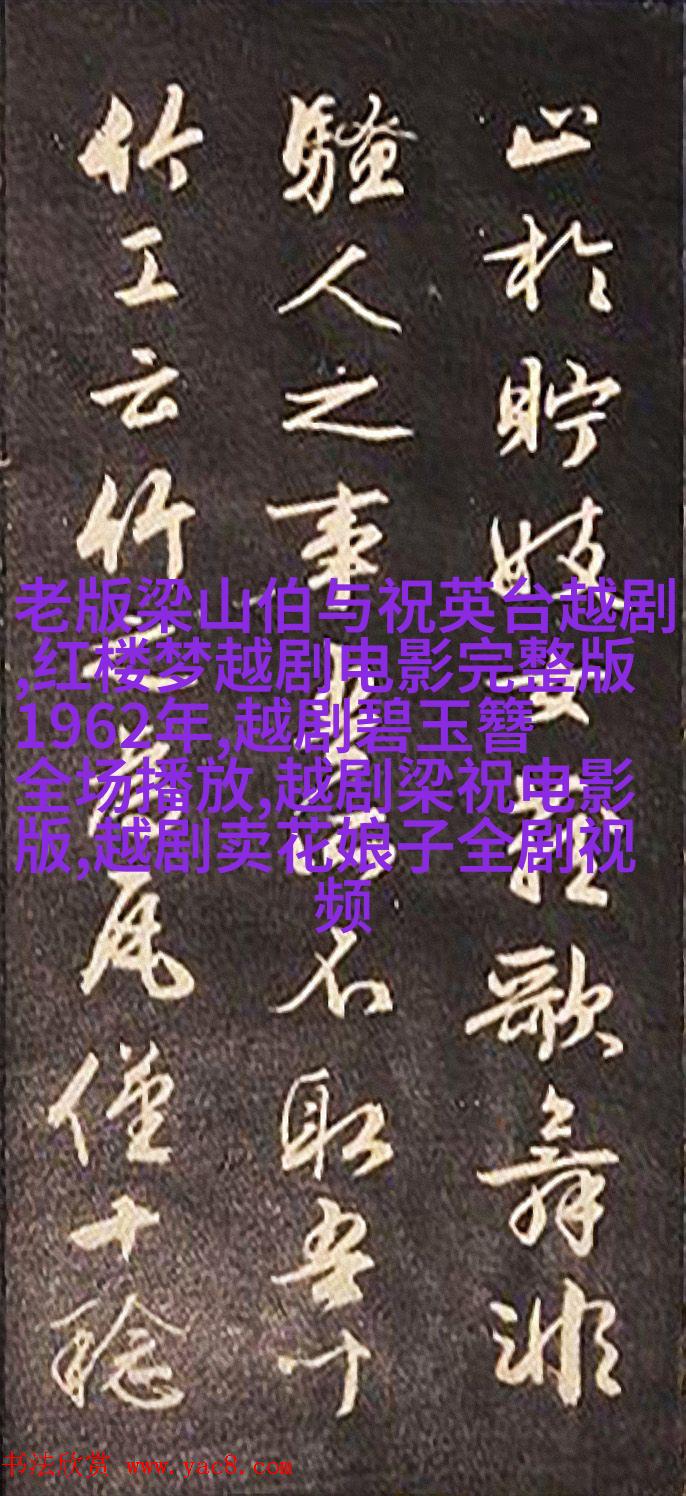 止於貯妓女藏歌舞非
騷人之事所不取吾聞
竹工云竹之為瓦僅十稔
老版梁山伯与祝英台越剧
,红楼梦越剧电影完整版
1962年,越剧碧玉簪
全场播放,越剧梁祝电影
版,越剧卖花娘子全剧视
频
书法欣赏 www.yac8.com